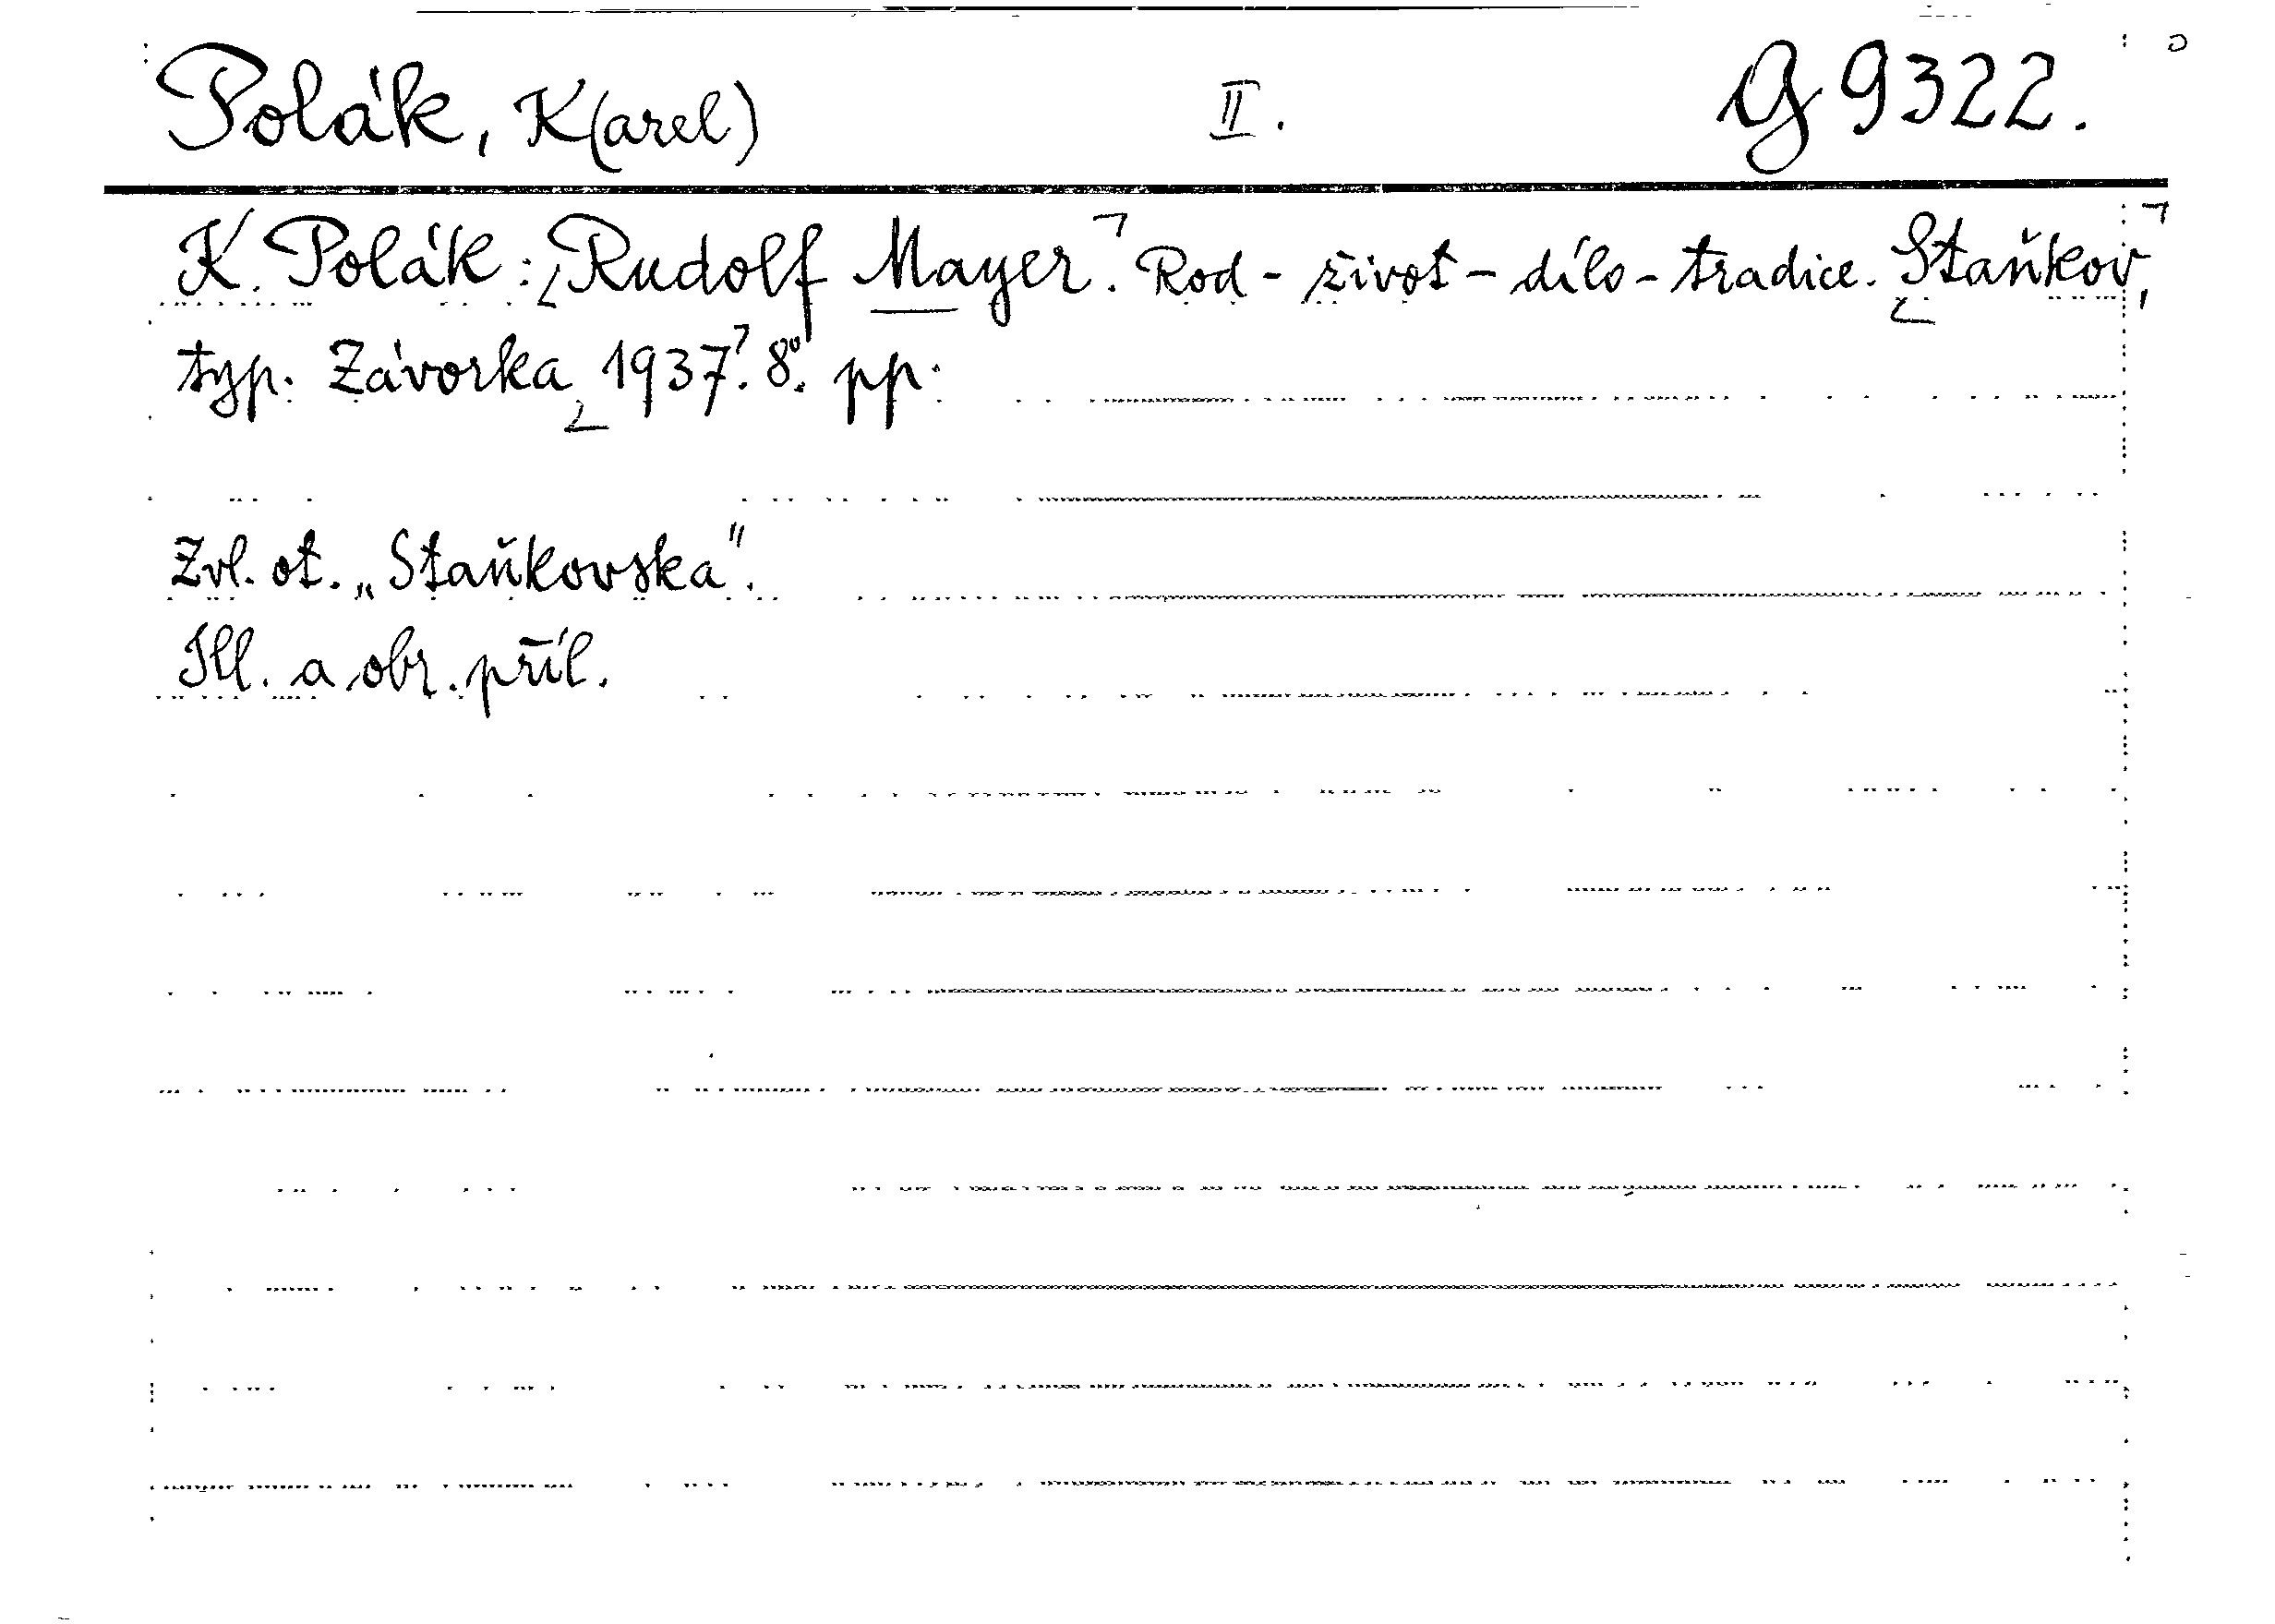 Polák, K(arel) II. G 9322.
K. Polák: Rudolf Mayer. Rod - život - dílo - tradice. Staňkov,
typ. Závorka 1937. 8°. pp.
Zvl. ot. „Staňkovska".
Ill. a obr. příl.